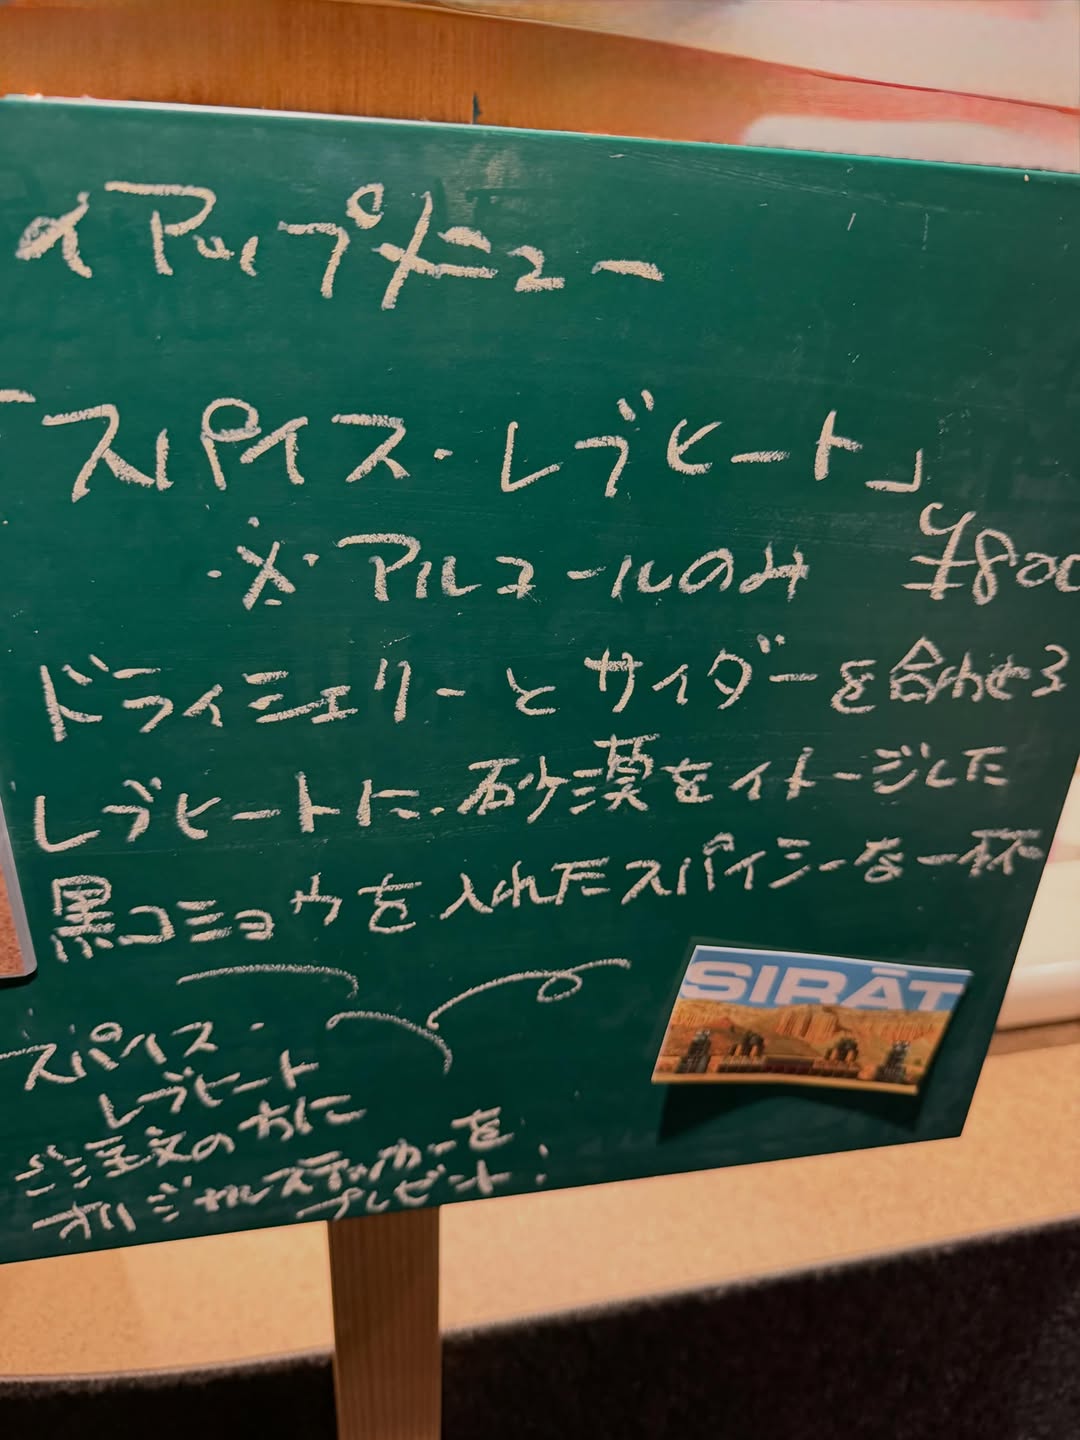 イアップメニュー
「スパイス・レブヒート」
※アルコールのみ ¥800
ドライシェリーとサイダーを合わせる
レブヒートに、砂漠をイメージした
黒コショウを入れたスパイシーな一杯
スパイス・
レブヒート
ご注文の方に
オリジナルステッカーを
プレゼント!
SIRĀT